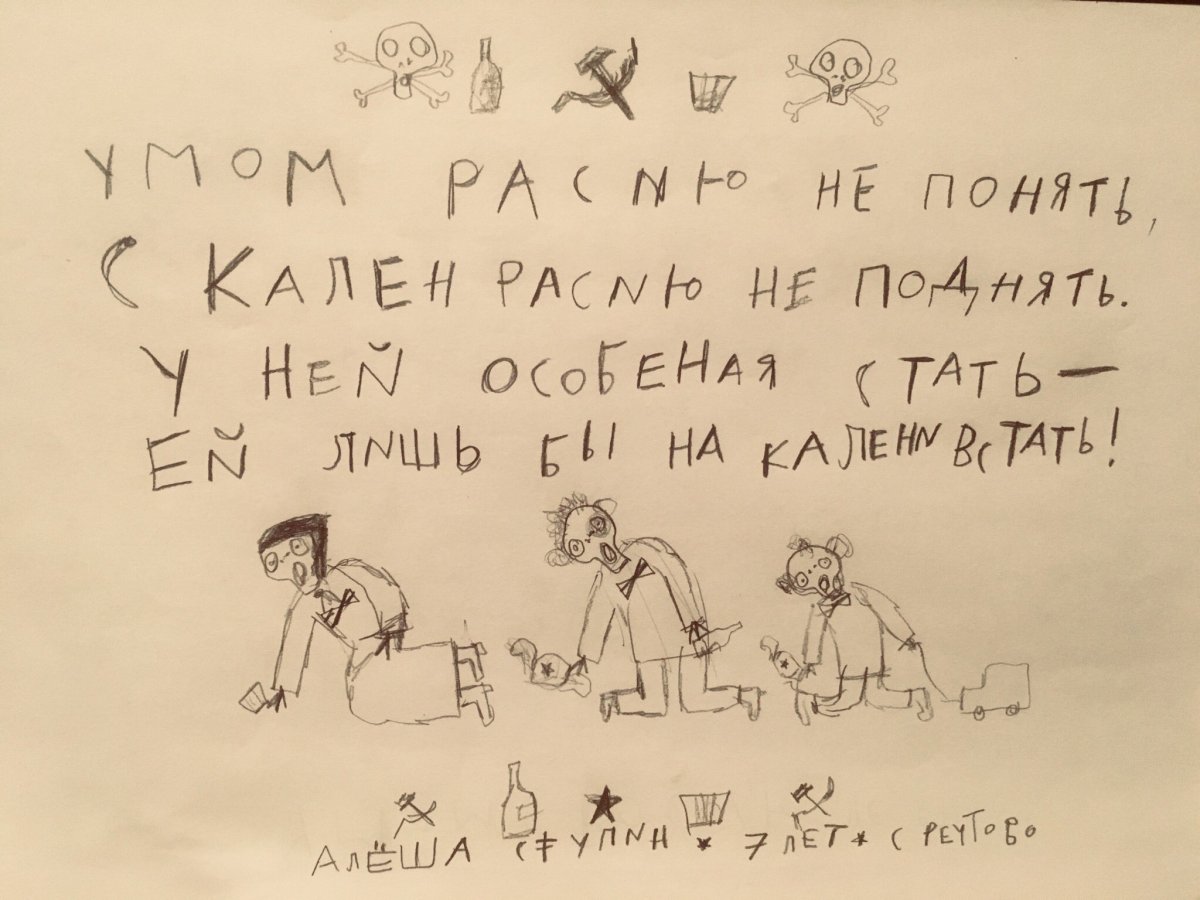 УМОМ РАСИЮ НЕ ПОНЯТЬ,
С КАЛЕН РАСИЮ НЕ ПОДНЯТЬ.
У НЕЙ ОСОБЕНАЯ СТАТЬ —
ЕЙ ЛИШЬ БЫ НА КАЛЕНИ ВСТАТЬ!
АЛЁША СТУПИН * 7 ЛЕТ * С РЕУТОВО